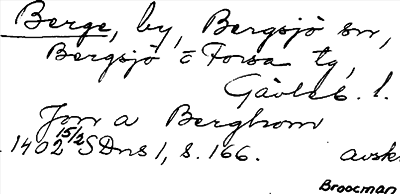 Berge, by, Bergsjö sn,
Bergsjö o Forsa tg,
Gävleb. l.
Jon a Berghom
1402 15/2 SDns 1, s. 166. avsk
Broocman